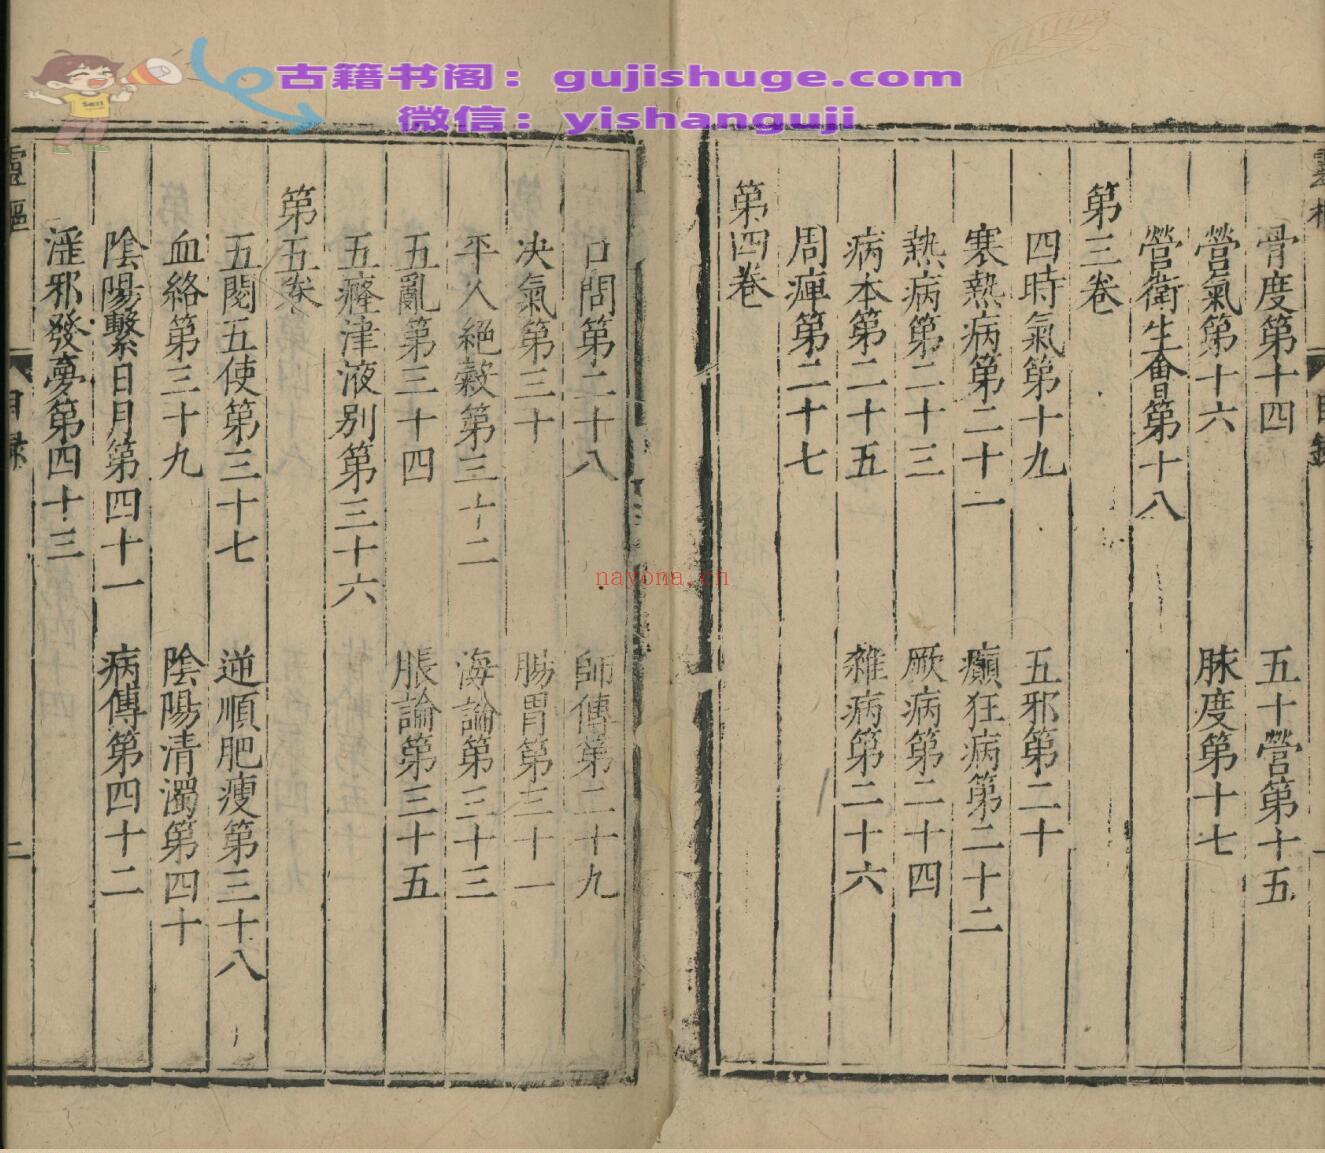 古籍书阁：gujishuge.com
微信：yishanguji
骨度第十四　五十營第十五
營氣第十六　脉度第十七
營衛生會第十八
第三卷
四時氣第十九　五邪第二十
寒熱病第二十一　癲狂病第二十二
熱病第二十三　厥病第二十四
病本第二十五　雜病第二十六
周痺第二十七
第四卷
口問第二十八　師傳第二十九
决氣第三十　腸胃第三十一
平人絕穀第三十二　海論第三十三
五亂第三十四　脹論第三十五
五癃津液别第三十六
第五卷
五閱五使第三十七　逆順肥瘦第三十八
血絡第三十九　陰陽清濁第四十
陰陽繫日月第四十一　病傳第四十二
淫邪發夢第四十三
靈樞　目錄　二
nayona.cn